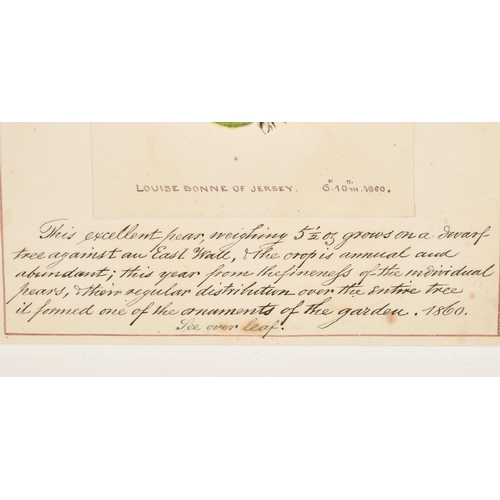 LOUISE BONNE OF JERSEY. 6" 10 m. 1860.
This excellent pear, weighing 5½ oz grows on a dwarf
tree against an East Wall, & the crop is annual and
abundant; this year from the fineness of the individual
pears, & their regular distribution over the entire tree
it formed one of the ornaments of the garden. 1860.
See over leaf.